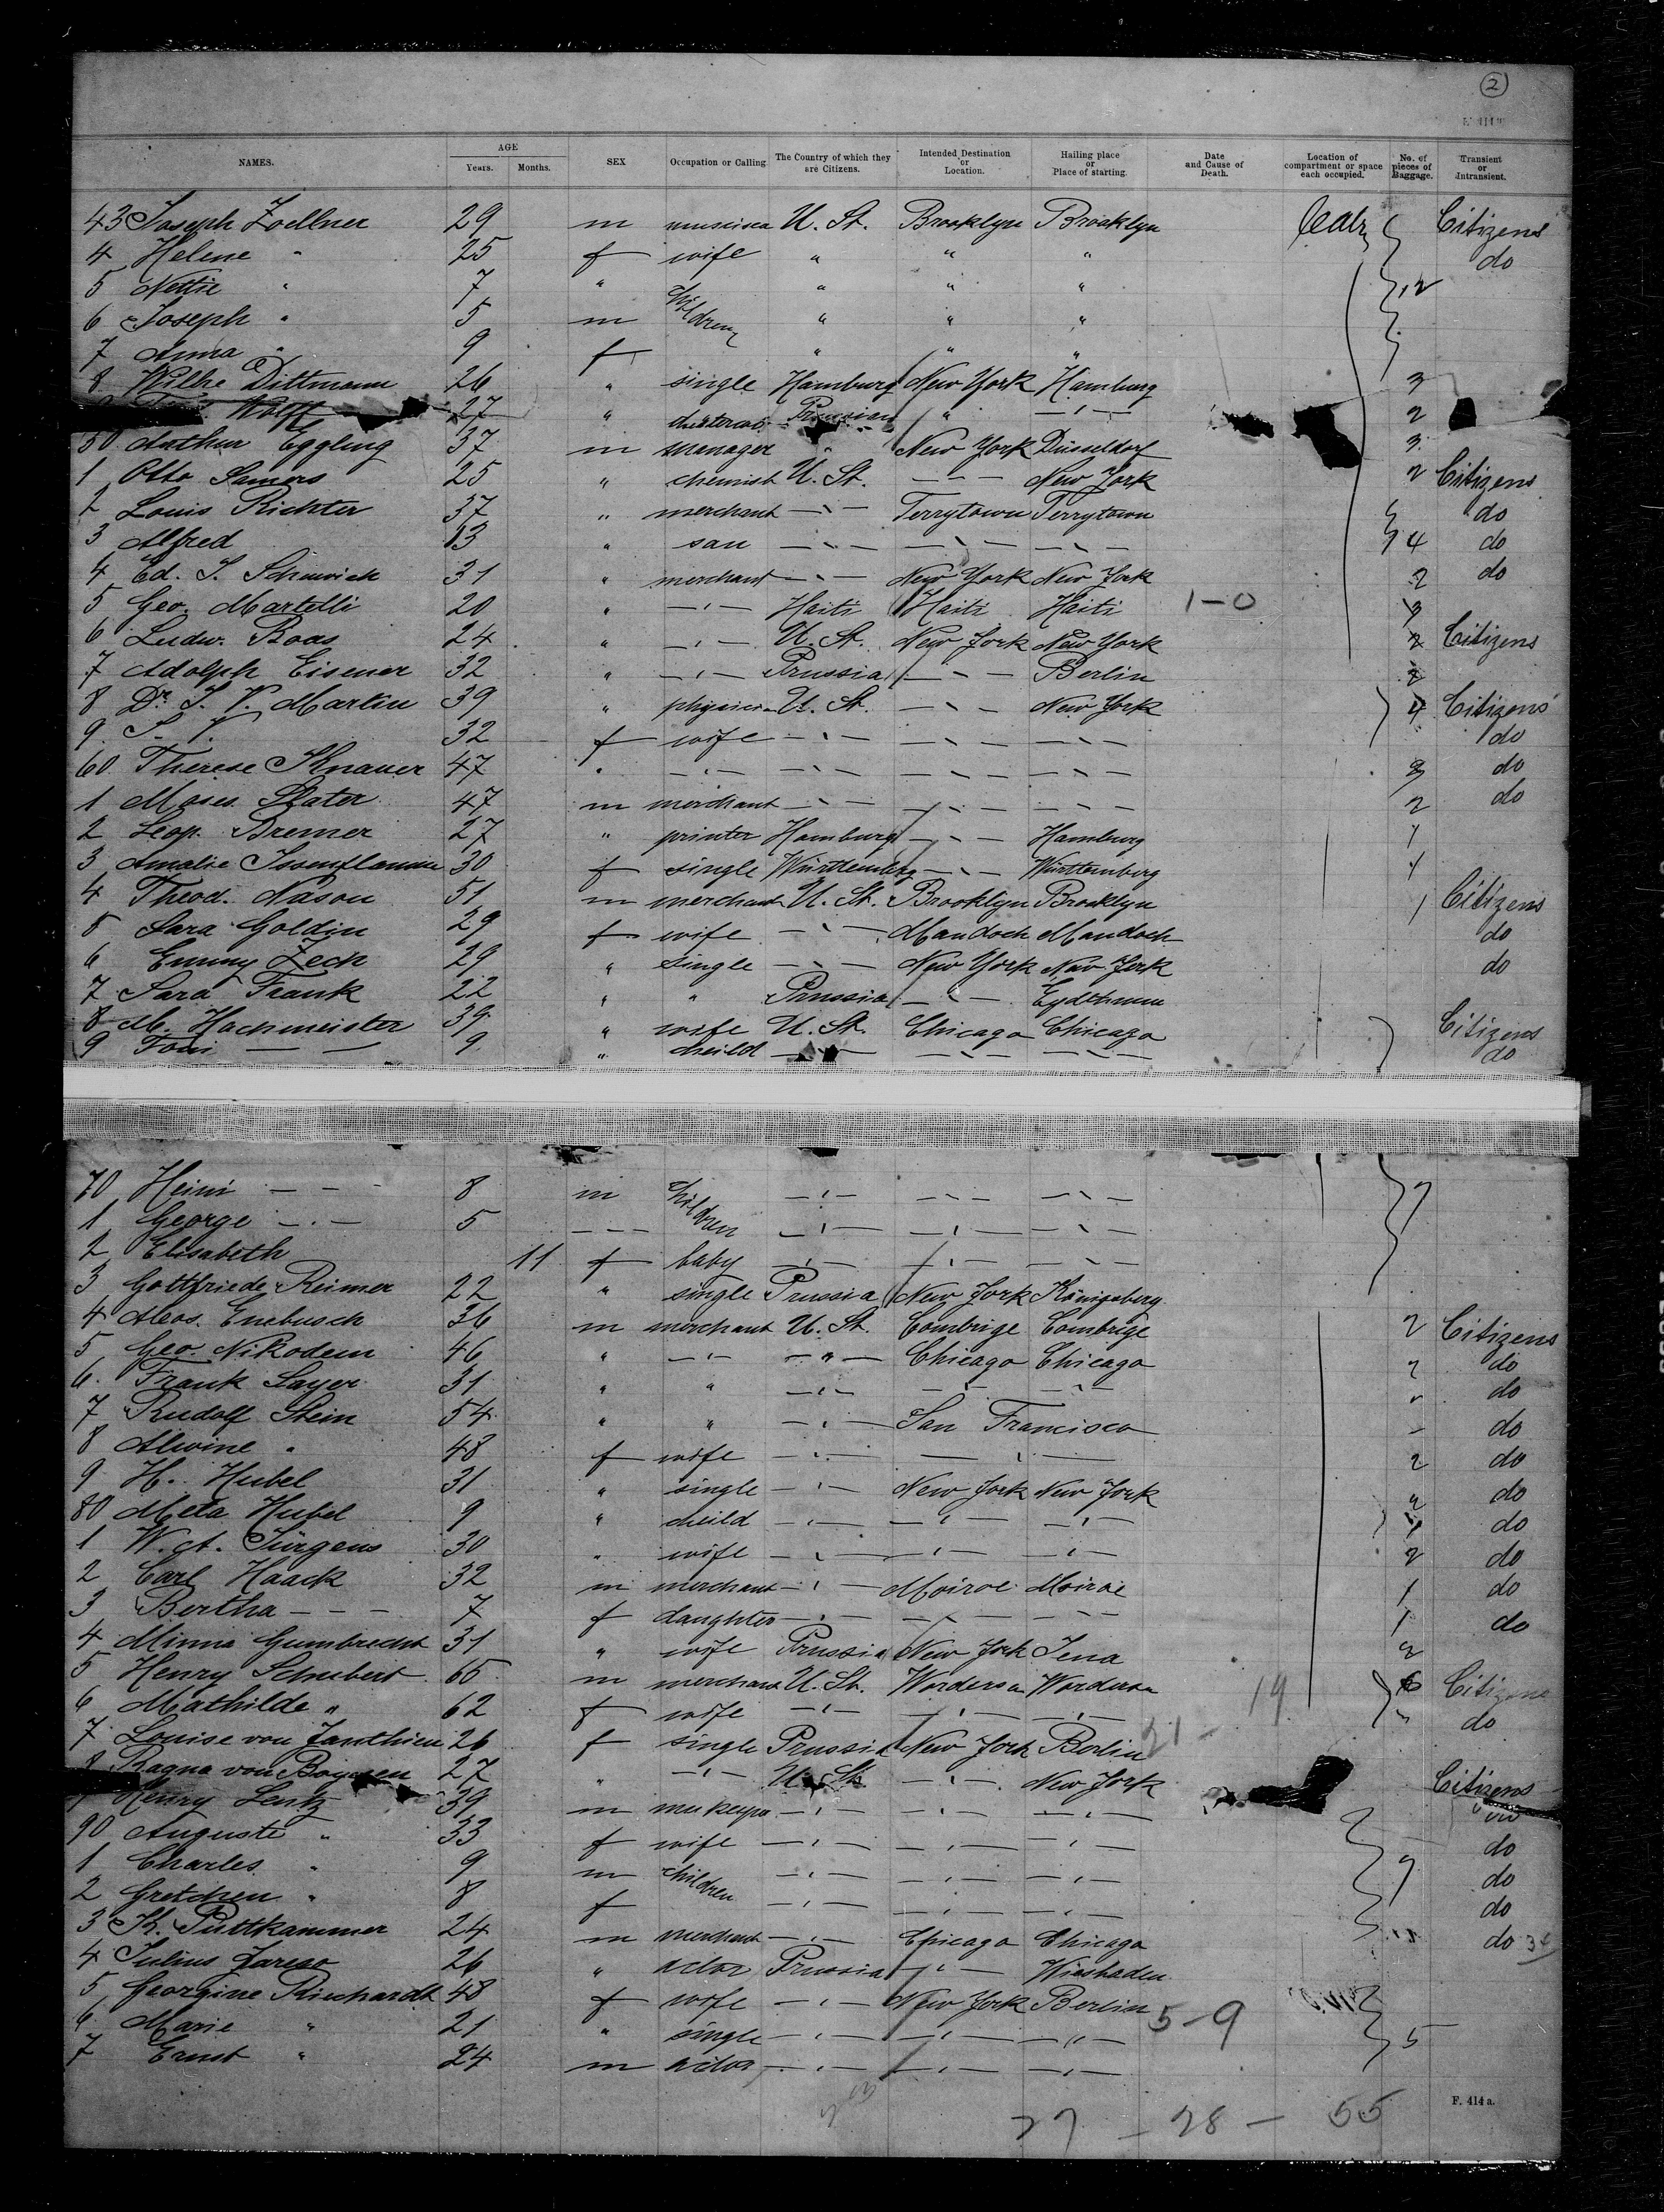 2
NAMES. AGE Years. Months. SEX Occupation or Calling. The Country of which they are Citizens. Intended Destination or Location. Hailing place or Place of starting. Date and Cause of Death. Location of compartment or space each occupied. No. of pieces of Baggage. Transient or Intransient.
43 Joseph Zoellner 29 m U. St. Brooklyn Brooklyn Citizens
4 Helene " 25 f wife " " " do
5 Nettie " 7 " children " " " 12
6 Joseph " 5 m " " "
7 Anna " 9 f " " "
8 Dittmann 26 " single Hamburg New York Hamburg 3
Wolff 27 " Prussian " -"- 2
50 Arthur Eggling 37 m manager " New York Düsseldorf 3
1 Otto Samers 25 " chemist U. St. -"- New York 2 Citizens
2 Louis Richter 37 " merchant -"- Terrytown Terrytown do
3 Alfred 13 " son -"- -"- -"- 4 do
4 Ed. S. 31 " merchant -"- New York New York 2 do
5 Geo. Martelli 20 " -"- Haiti Haiti Haiti 1-0 3
6 Ludw. Boas 24 " -"- U. St. New York New York 2 Citizens
7 Adolph Eisener 32 " -"- Prussia -"- Berlin 2
8 Dr. S. V. Martin 39 " U. St. -"- New York 4 Citizens
9 S. V. 32 f wife -"- -"- -"- do
60 Therese Knauer 47 " -"- -"- -"- -"- do
1 Moses Slater 47 m merchant -"- -"- -"- 2 do
2 Leop. Bremer 27 " printer Hamburg -"- Hamburg 1
3 Amalie 30 f single Württemberg -"- Württemberg 1
4 Theod. Nason 51 m merchant U. St. Brooklyn Brooklyn 1 Citizens
5 Sara Goldin 29 f wife -"- Mandoch Mandoch do
6 Emmy Zech 29 " single -"- New York New York do
7 Sara Frank 22 " " Prussia -"-
8 M. Hachmeister 39 " wife U. St. Chicago Chicago Citizens
9 Toni — — 9 " cheild -"- -"- -"- do
70 Heini — — 8 m children -"- -"- -"- 7
1 George -"- 5 --- -"- -"- -"-
2 Elisabeth 11 f baby -"- -"- -"-
3 Gottfriede Reimer 22 " single Prussia New York Königsberg
4 36 m merchant U. St. Combrige Combrige 2 Citizens
5 Geo. Nikodem 46 " -"- -"- Chicago Chicago 2 do
6 Frank Sayer 31 " " -"- -"- -"- do
7 Rudolf Stein 54 " " -"- San Francisco do
8 Alwine " 48 f wife -"- -"- 2 do
9 H. Hubel 31 " single -"- New York New York do
80 Meta Hubel 9 " cheild -"- -"- -"- do
1 Jürgens 30 " wife -"- -"- -"- 2 do
2 Carl Haack 32 m merchant -"- Moiroe Moiroe 1 do
3 Bertha - - - 7 f daughter -"- -"- -"- 1 do
4 Minna Gumbrecht 31 " wife Prussia New York Jena 2
5 Henry Schubert 65 m merchant U. St. 19 Citizens
6 Mathilde " 62 f wife -"- -"- -"- do
7 Louise von Janthien 26 f single Prussia New York Berlin 21
8 Ragna von Boyesen 27 " -"- U. St. -"- New York Citizens
Henry Lentz 39 m -"- -"- -"- do
90 Auguste " 33 f wife -"- -"- -"- do
1 Charles " 9 m children -"- -"- -"- 7 do
2 Gretchen " 8 f -"- -"- -"- do
3 K. Puttkammer 24 m merchant -"- Chicago Chicago do 34
4 Julius 26 " actor Prussia -"- Wiesbaden
5 Georgine Riechardt 48 f wife -"- New York Berlin 5-9
6 Marie " 21 " single -"- -"- -"- 5
7 Ernst " 24 m actor -"- -"- -"-
27 - 28 - 55
F. 414 a.